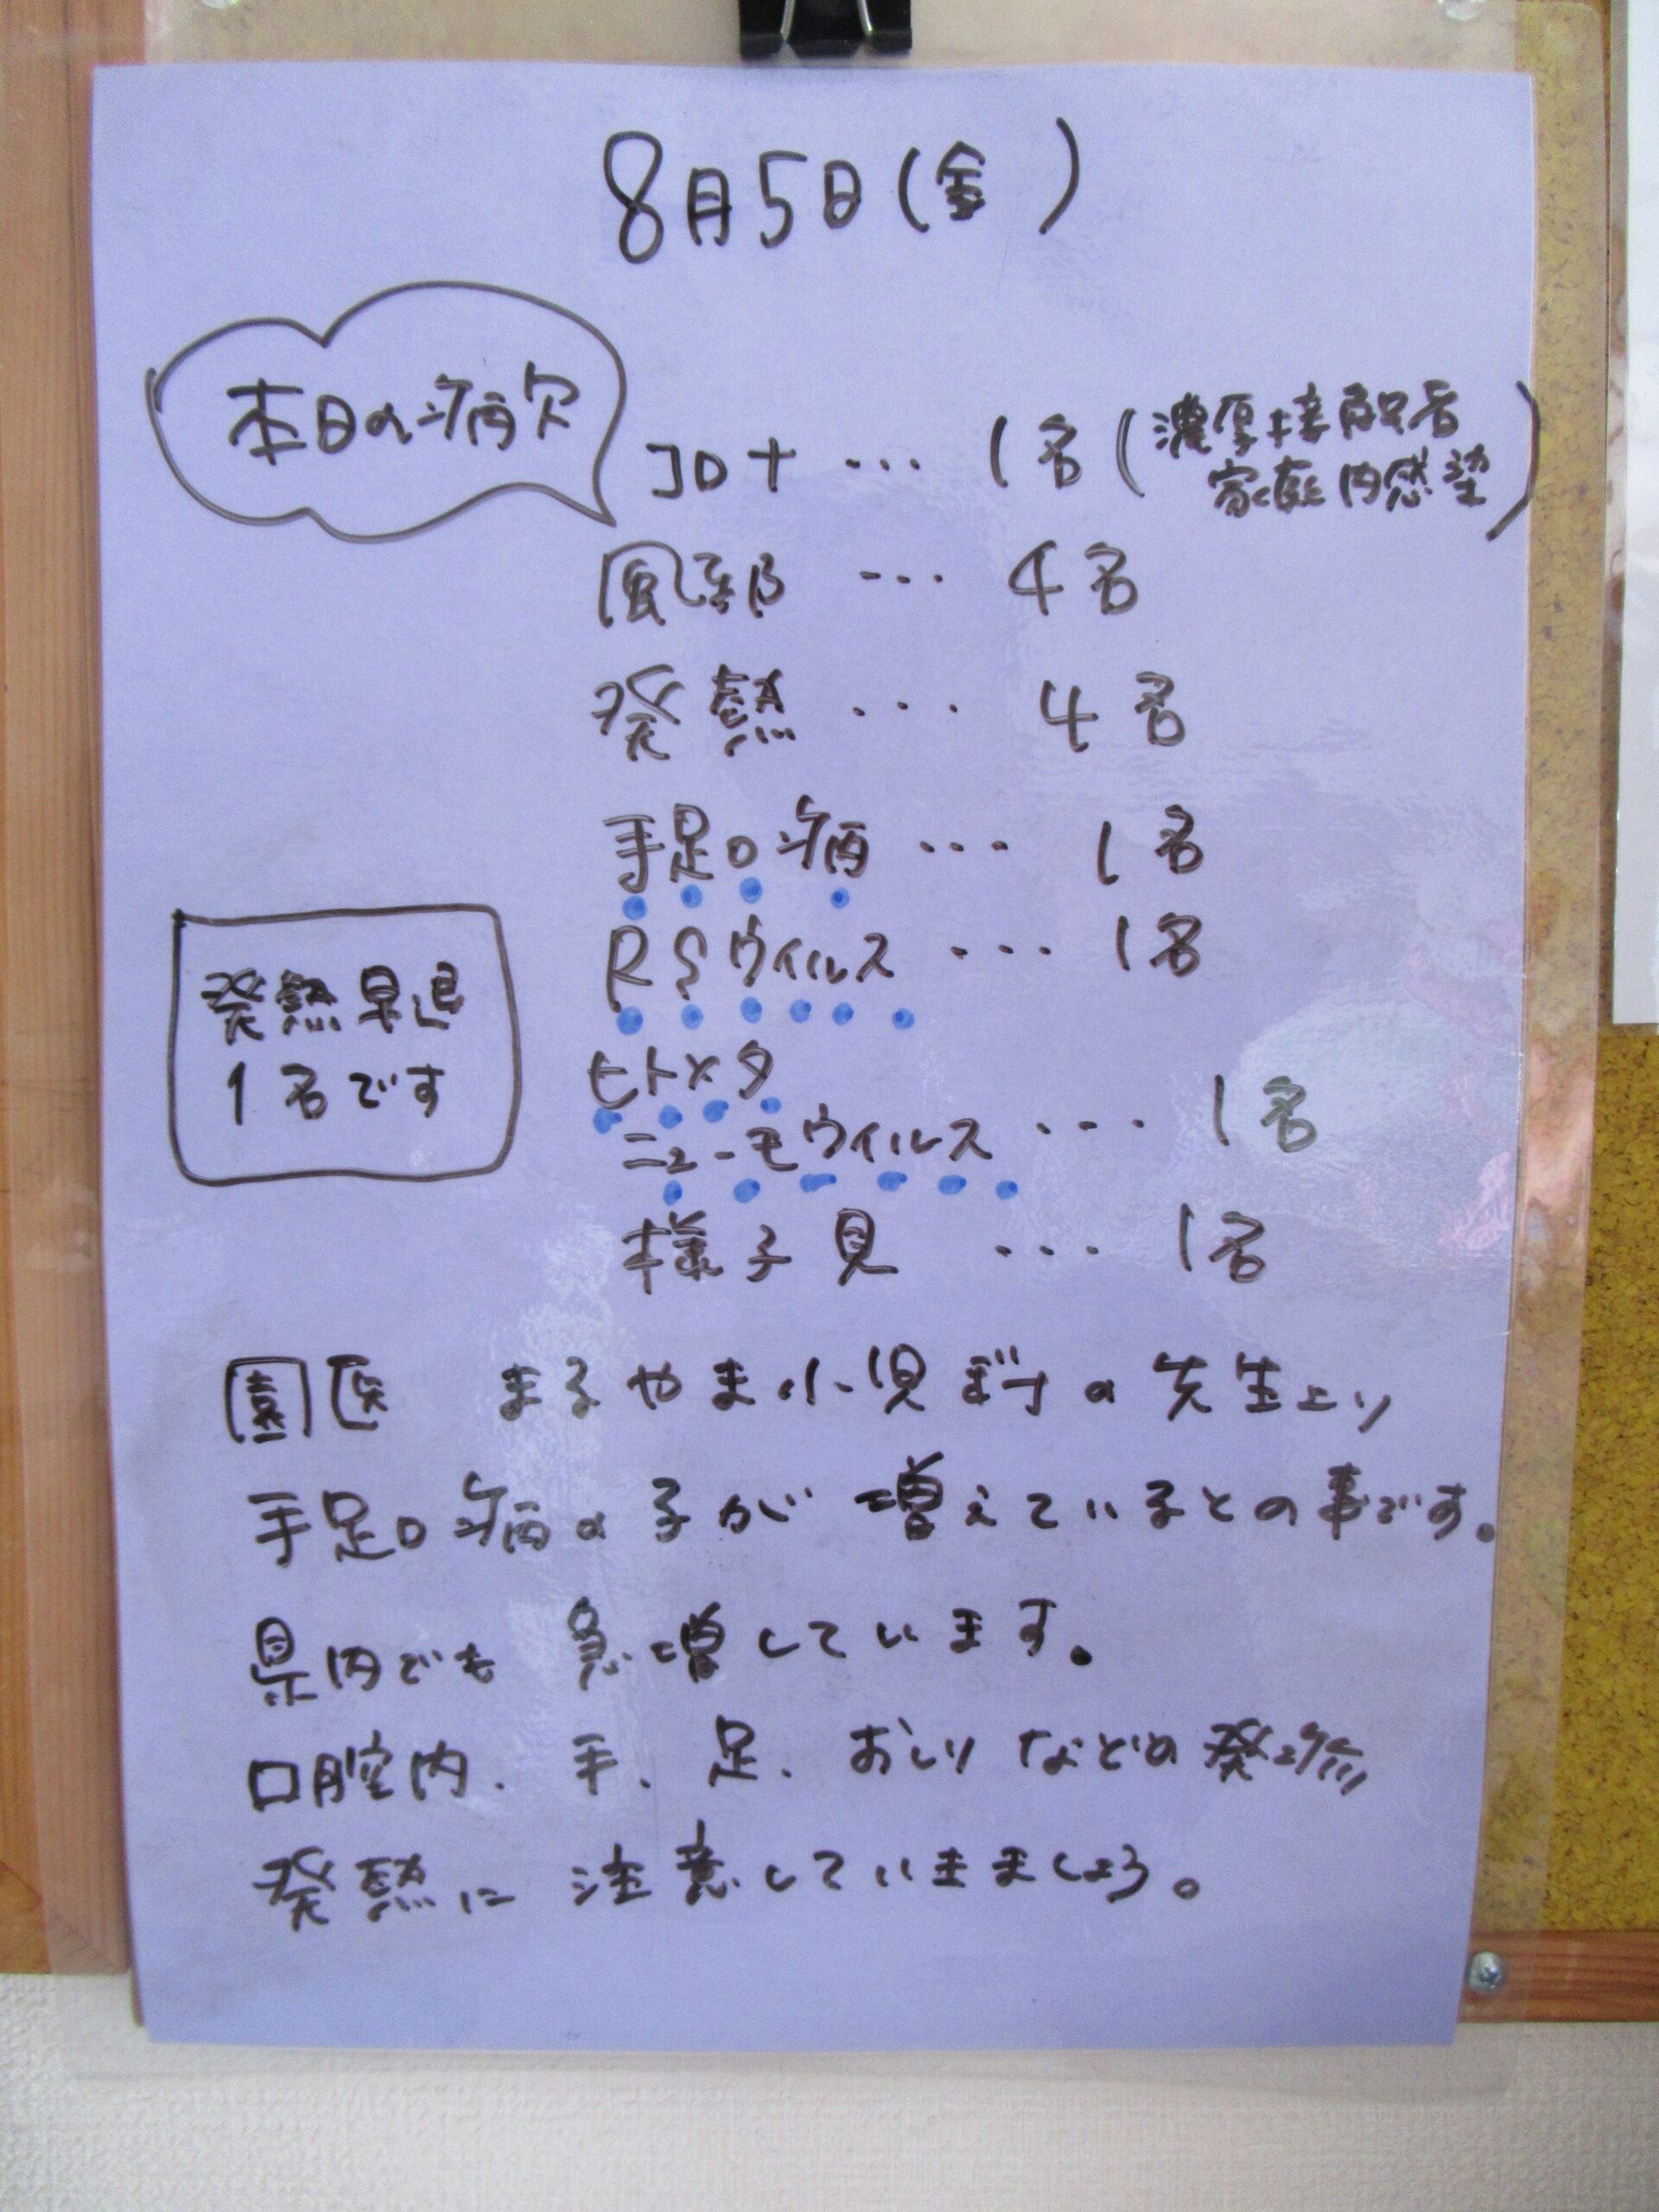 8月5日(金)
本日の病欠
コロナ・・・1名(濃厚接触者
家庭内感染)
風邪・・・4名
発熱・・・4名
手足口病・・・1名
RSウイルス・・・1名
ヒトメタ
ニューモウイルス・・・1名
様子見・・・1名
発熱早退
1名です
園医 まるやま小児科の先生より
手足口病の子が増えているとの事です。
県内でも急増しています。
口腔内、手、足、おしりなどの発疹
発熱に注意していきましょう。